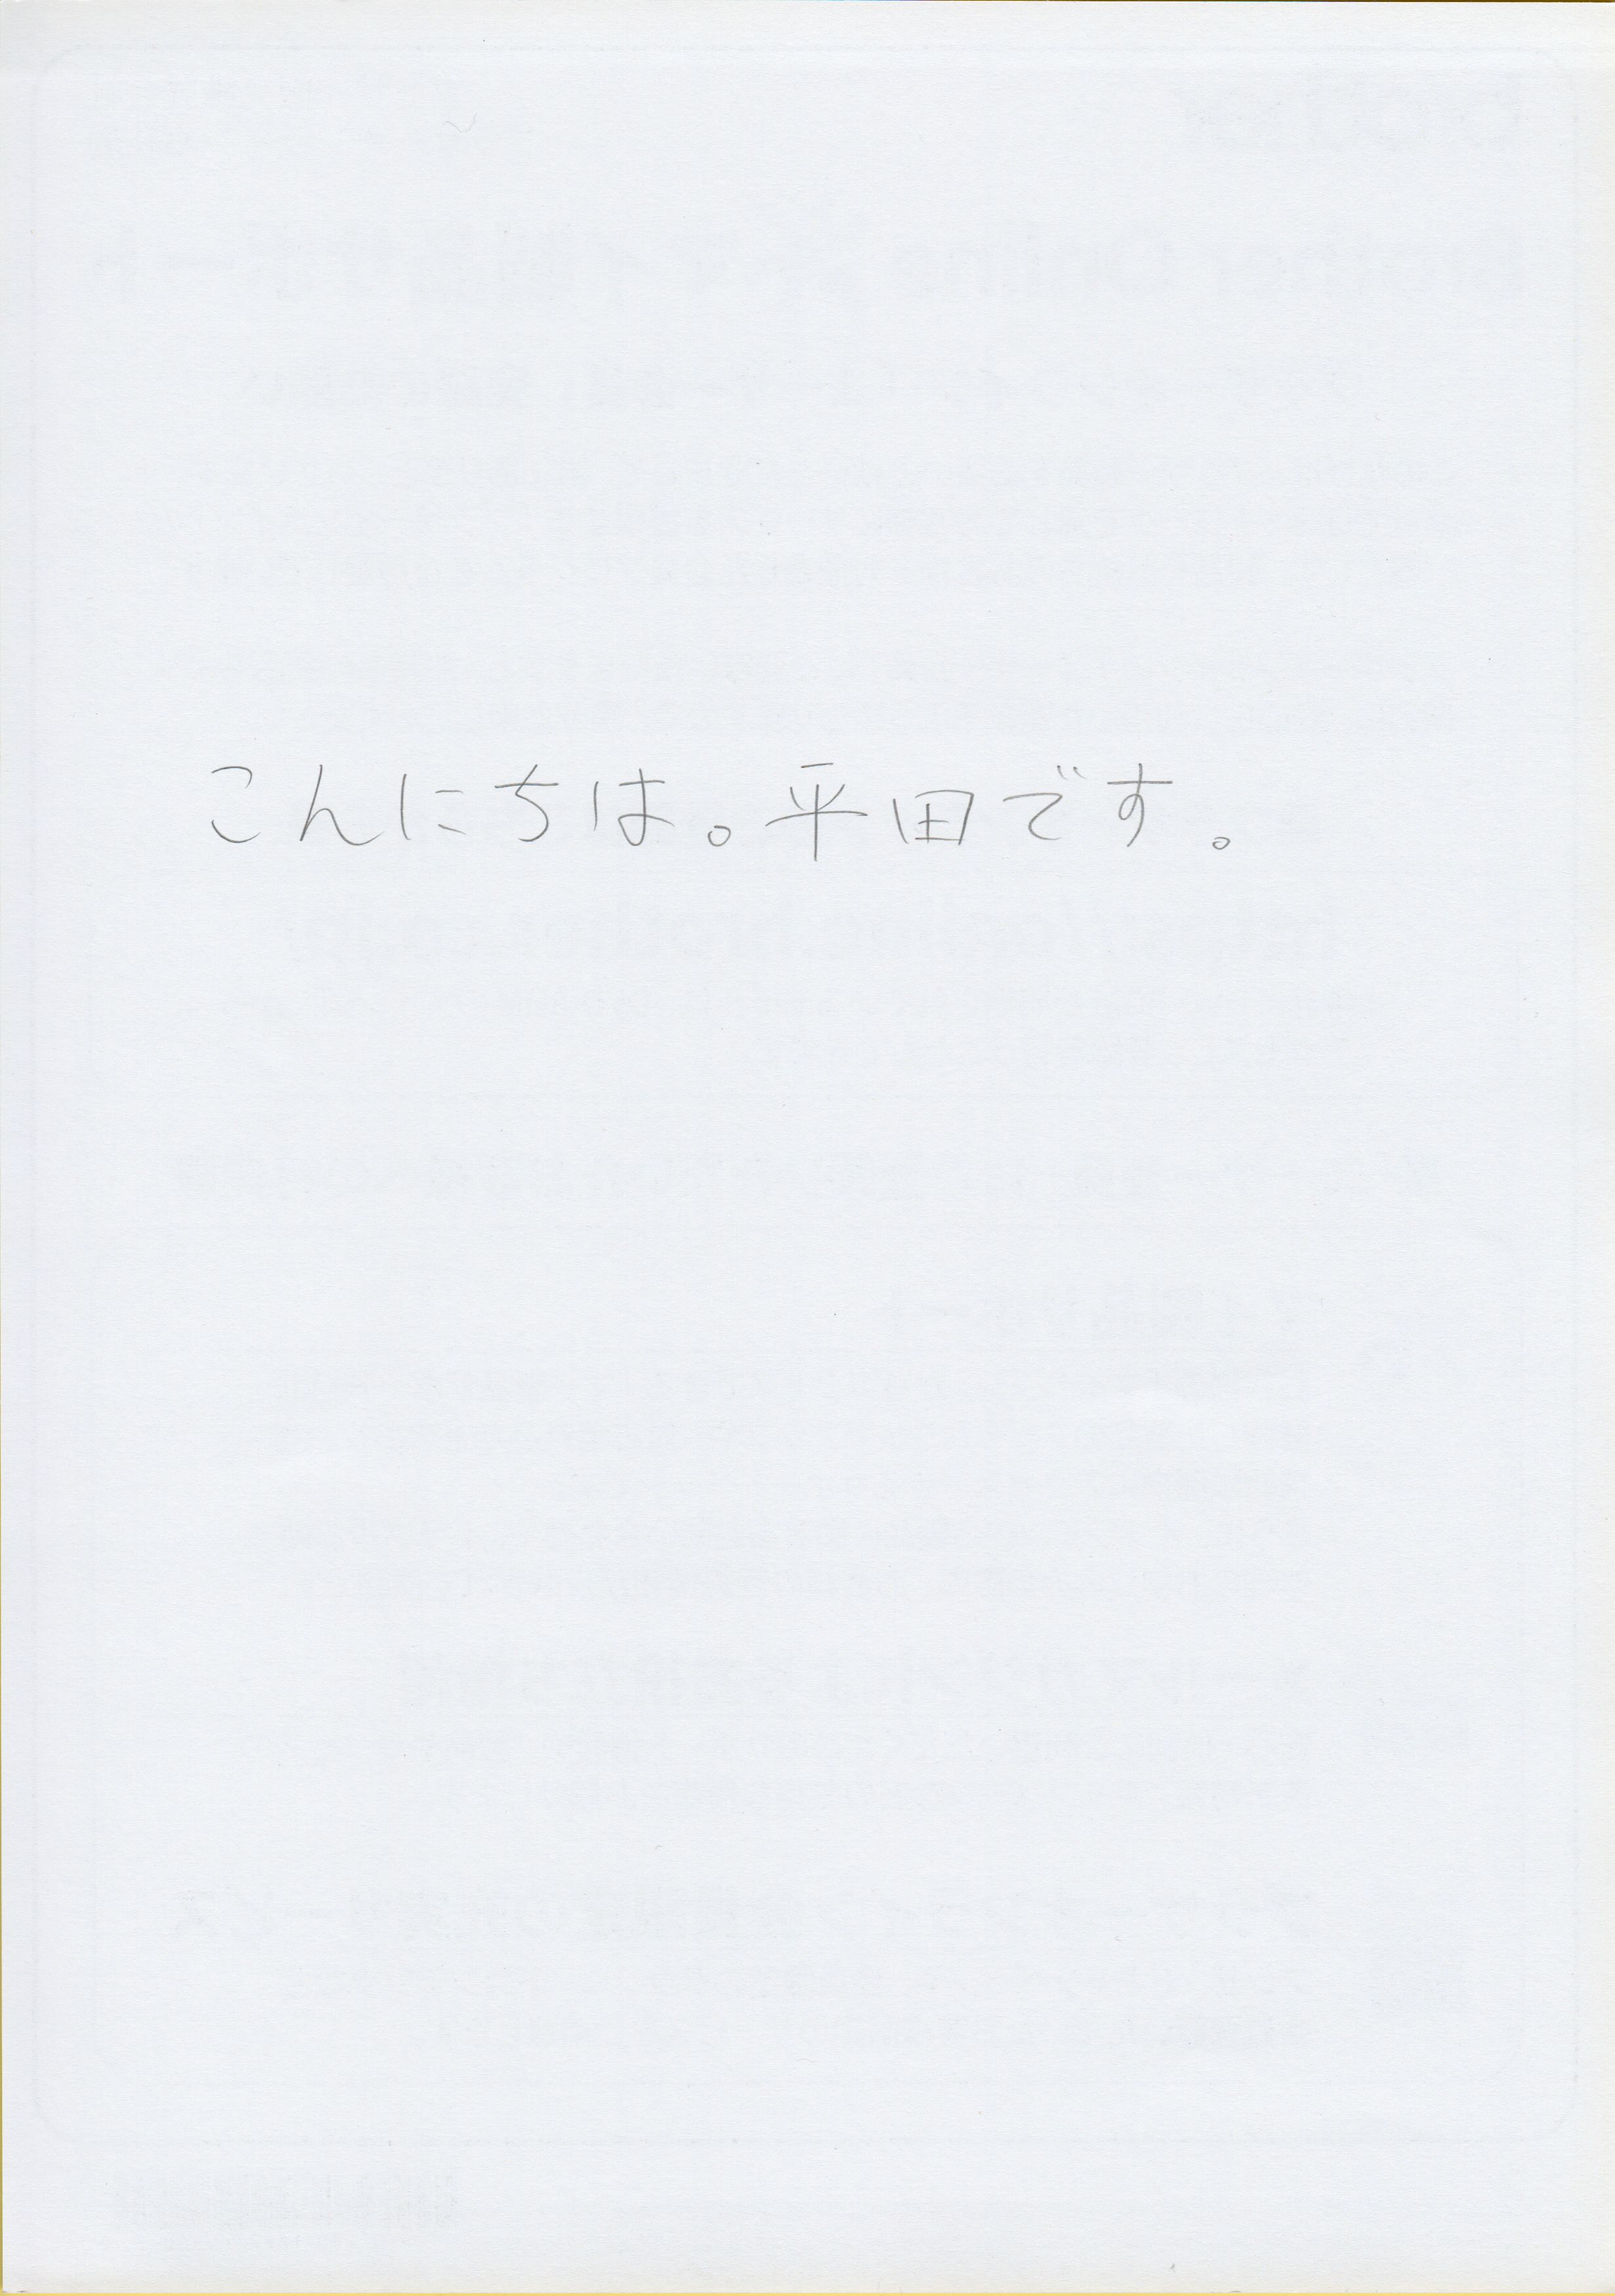 こんにちは。平田です。